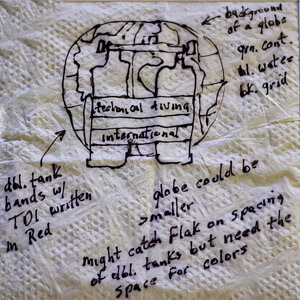 background
of a globe
grn. cont.
bl. water
bk. grid
tdi
technical diving
international
dbl. tank
bands w/
TDI written
in Red
globe could be
smaller
might catch flak on spacing
of dbl. tanks but need the
space for colors